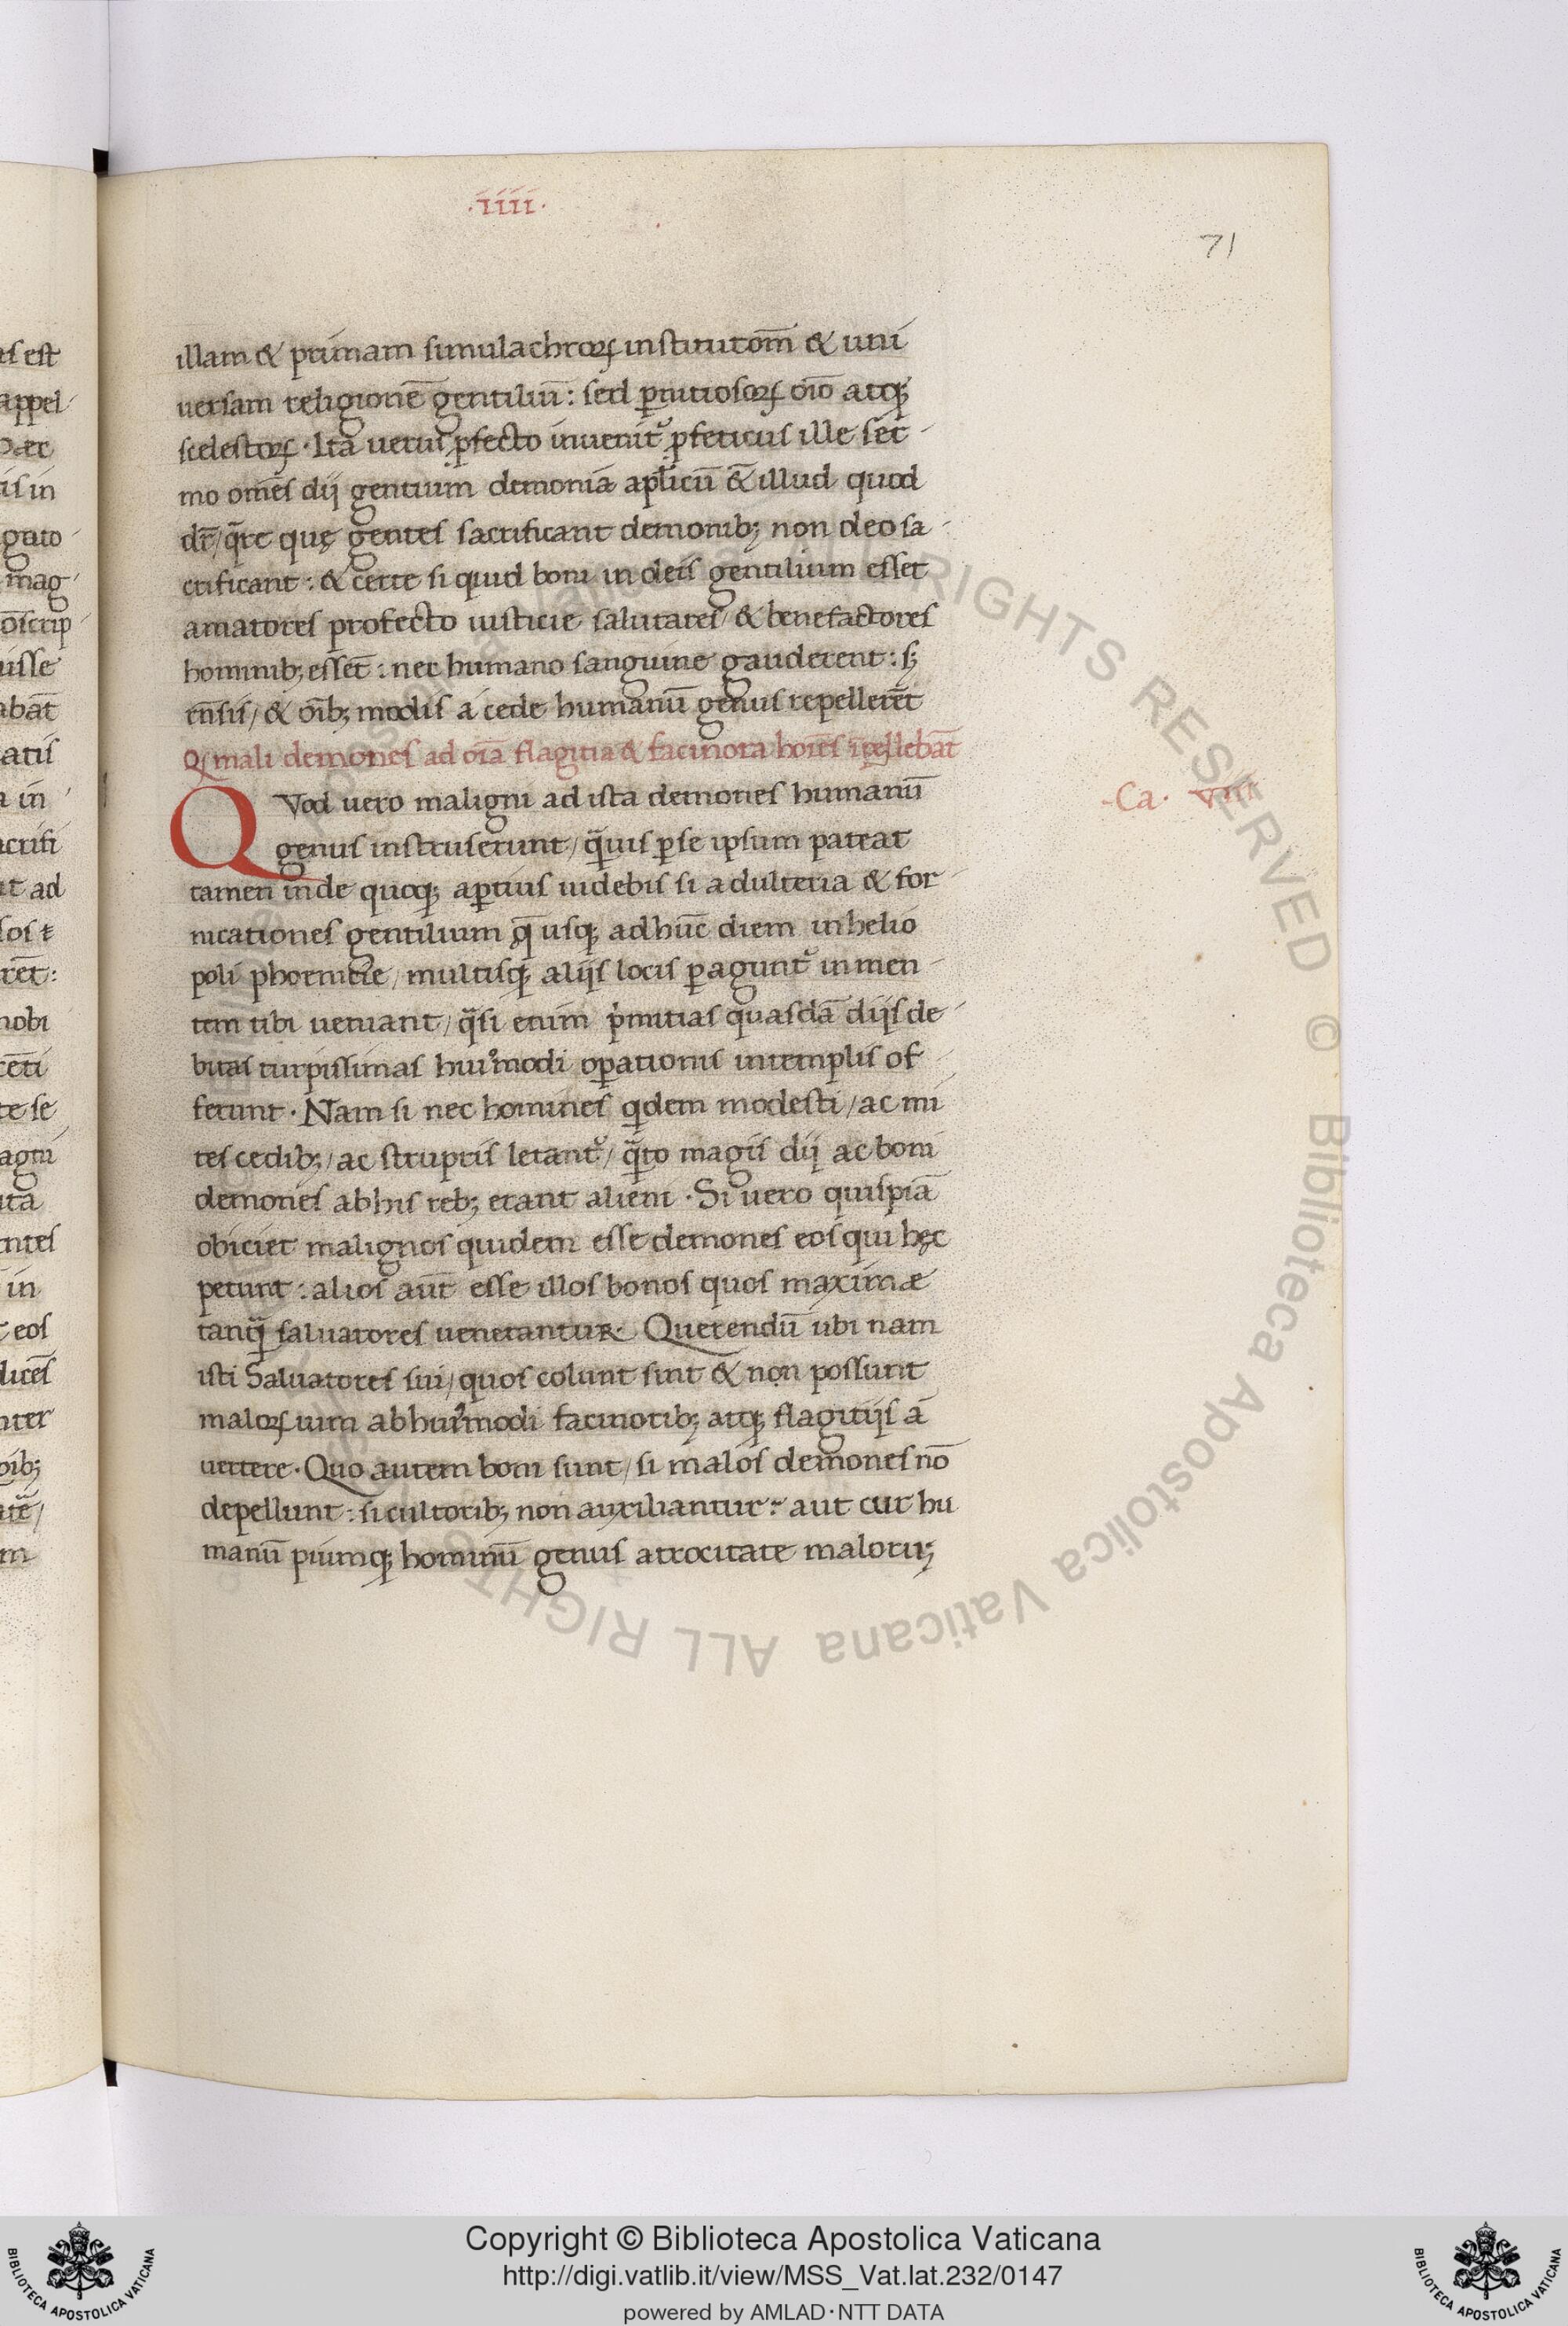 ·iiii·
71
illam & primam simulachroꝝ institutom̄ & uni
uersam religionē gentiliū: sed ꝑnitiosoꝝ oīo atqꝫ
scelestoꝝ · Ita uerus ꝓfecto inuenit᷑ ꝓfeticus ille ser
mo omēs dij gentium demonia apl̄icū & illud quod
dr̄ / qͣre quę gentes sacrificant demonibꝫ non deo sa
crificant: & certe si quid boni in deis gentilium esset
amatores profecto iusticie salutares / & benefactores
hominibꝫ essēt: nec humano sanguine gauderent: sꝫ
/ & oībꝫ modis a cede humanū genus repellerēt
Qꝫ mali demones ad oīa flagitia & facinora hoīes īpellebāt
QVod uero maligni ad ista demones humanū
-Ca· viii
genus instruserunt / qͣuis ꝑ se ipsum pateat
tamen inde quoqꝫ aꝑtius uidebis si adulteria & for
nicationes gentilium q̄ usqꝫ ad hūc diem in helio
poli phoenicie / multisqꝫ alijs locis ꝑagunt᷑ in men
tem tibi ueniant / qͣsi enim pͥmitias quasdā dijs de
bitas turpissimas huiꝰmodi oꝑationis in templis of
ferunt · Nam si nec homines qͥdem modesti / ac mi
tes cedibꝫ / ac strupris letant᷑ / qͣto magis dij ac boni
demones ab his rebꝫ erant alieni · Si uero quispiā
obiciet malignos quidem esse demones eos qui hęc
petunt: alios aūt esse illos bonos quos maximæ
tanqͣ̄ saluatores uenerantur · Querendū ubi nam
isti Saluatores sui / quos colunt sint & non possunt
maloꝝ uim ab huiꝰmodi facinoribꝫ atqꝫ flagitijs a
uertere · Quo autem boni sunt / si malos demones nō
depellunt: si cultoribꝫ non auxiliantur: aut cur hu
manū piumqꝫ hominū genus atrocitate maloruꝫ
Copyright © Biblioteca Apostolica Vaticana
http://digi.vatlib.it/view/MSS_Vat.lat.232/0147
powered by AMLAD·NTT DATA